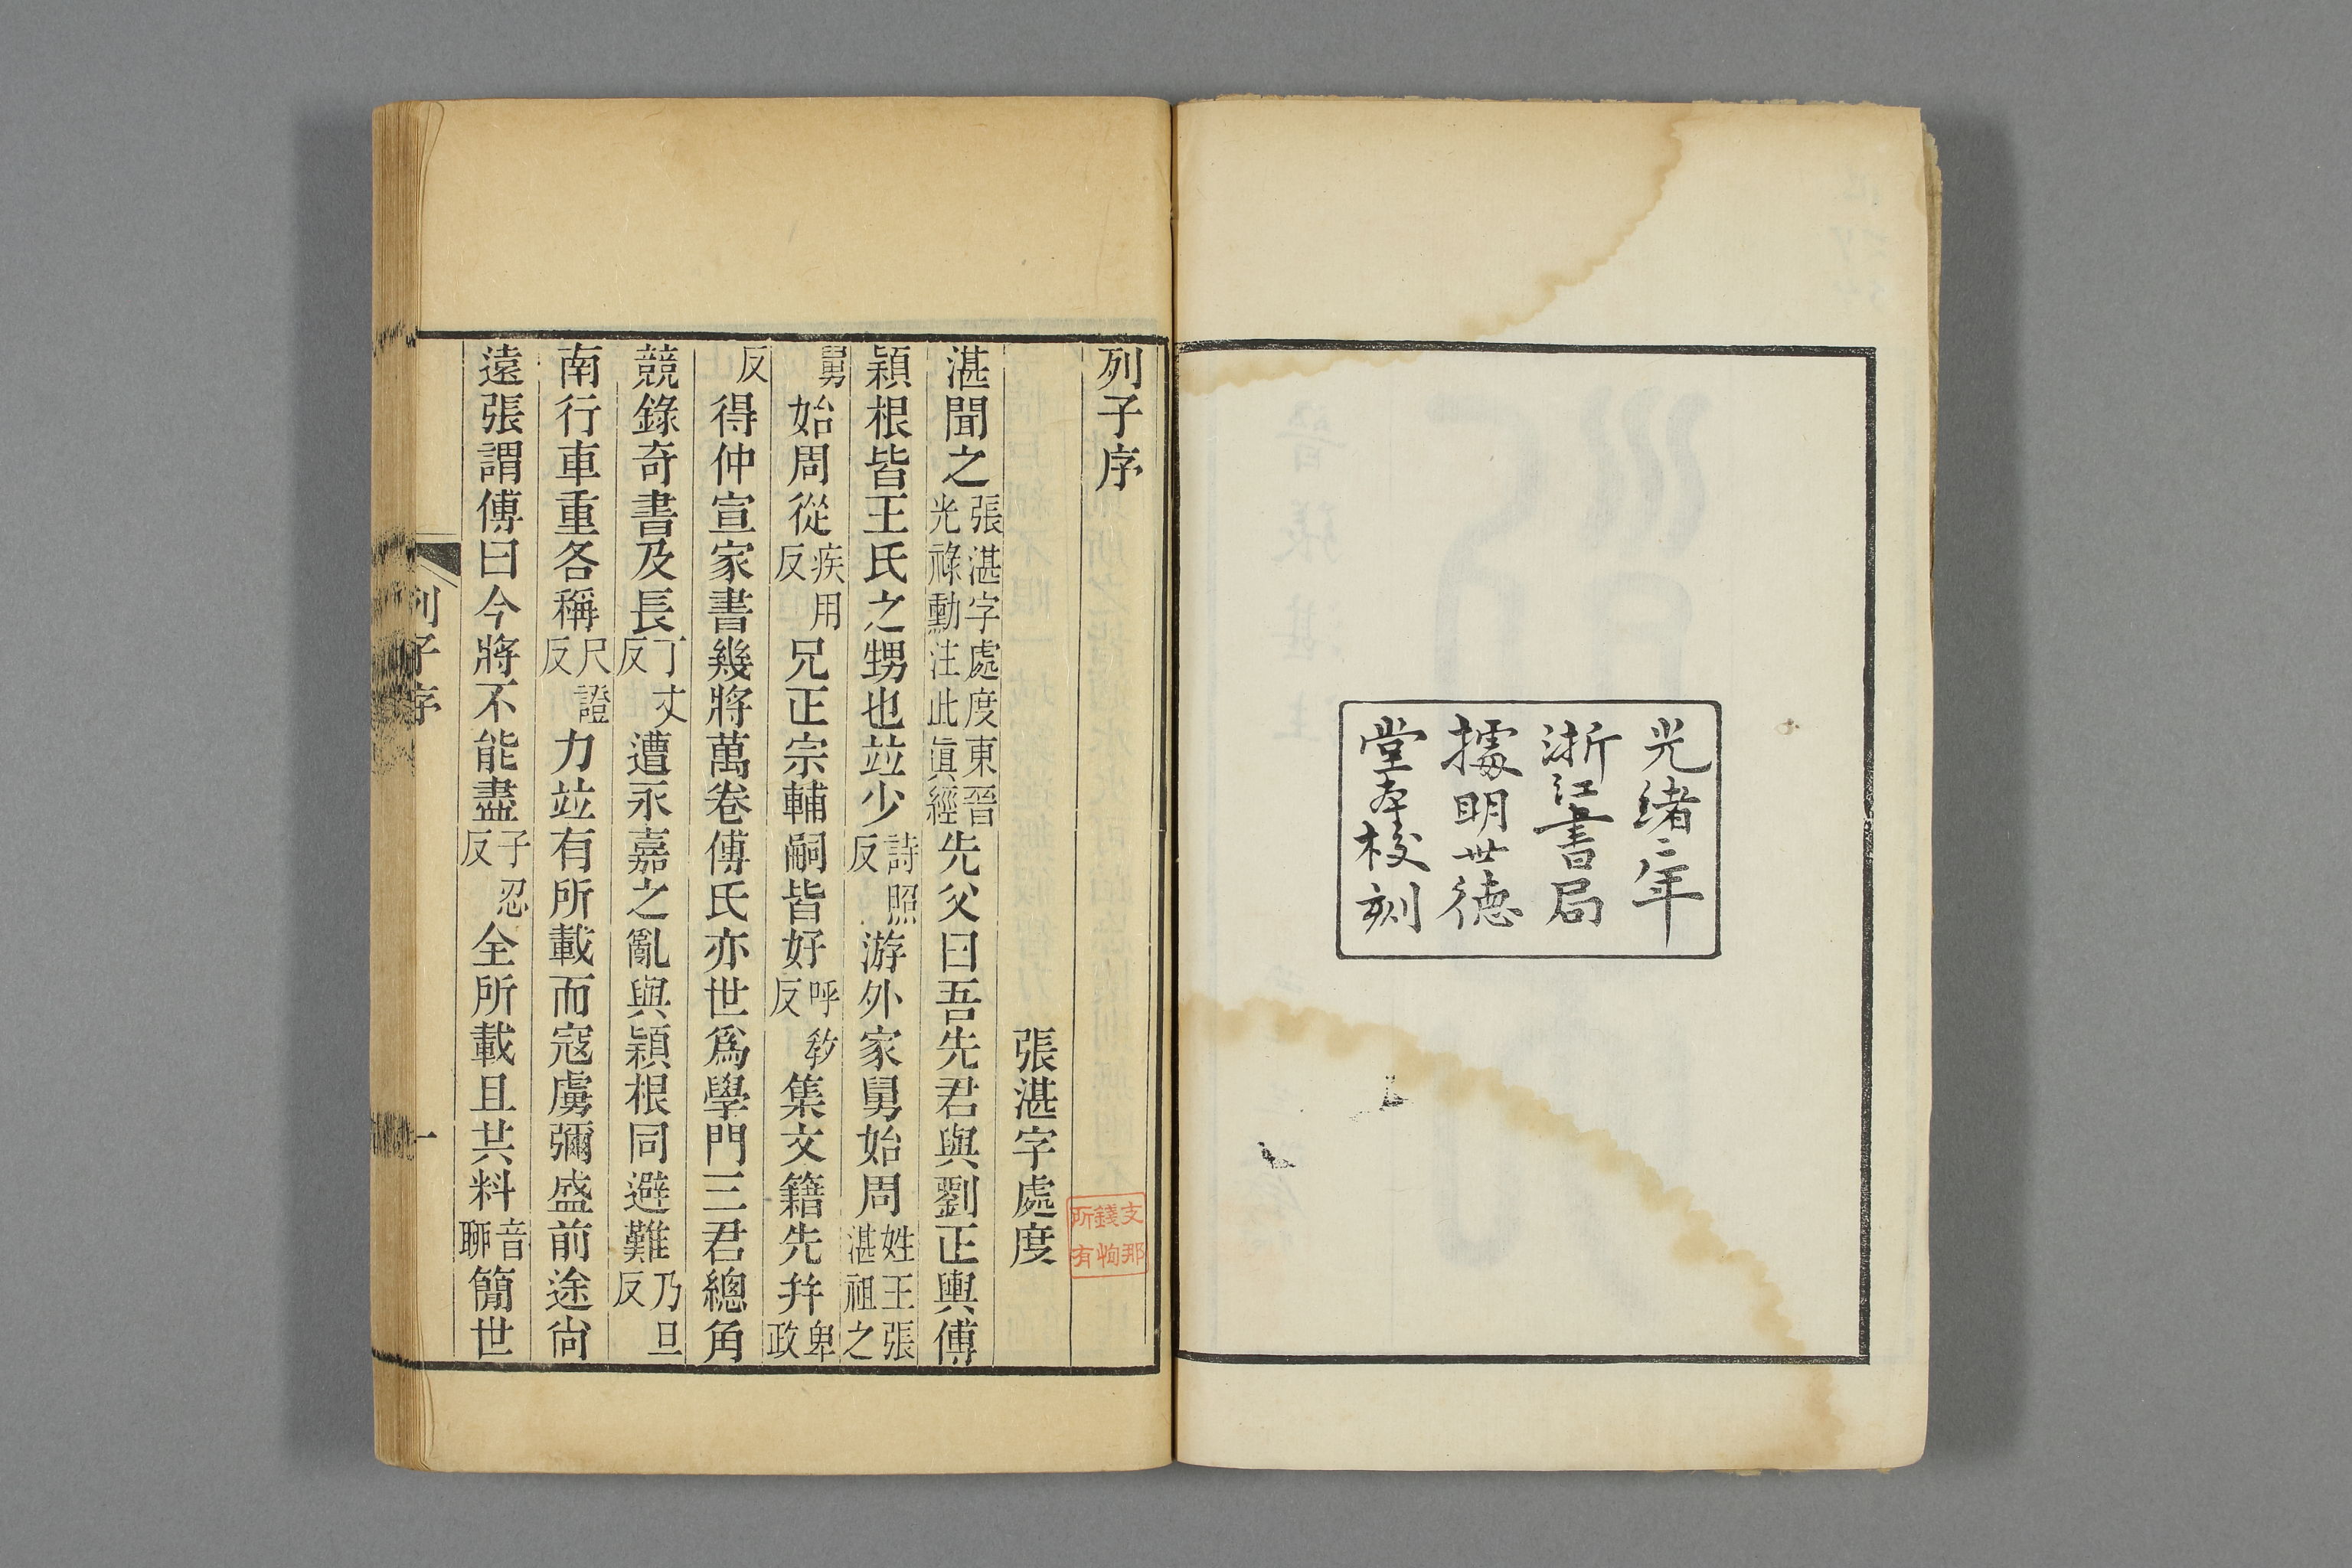 光緒二年
浙江書局
據明世德
堂本校刻
列子序
張湛字處度
湛聞之張湛字處度東晉光祿勳注此眞經先父曰吾先君與劉正輿傅
穎根皆王氏之甥也竝少詩照反游外家舅始周姓王張湛祖之
舅始周從疾用反兄正宗輔嗣皆好呼敎反集文籍先幷卑政
反得仲宣家書幾將萬卷傅氏亦世爲學門三君總角
競錄奇書及長丁丈反遭永嘉之亂與穎根同避難乃旦反
南行車重各稱尺證反力竝有所載而寇虜彌盛前途尙
遠張謂傅曰今將不能盡子忍反全所載且共料音聊簡世
列子序
一
支那
錢恂
所有